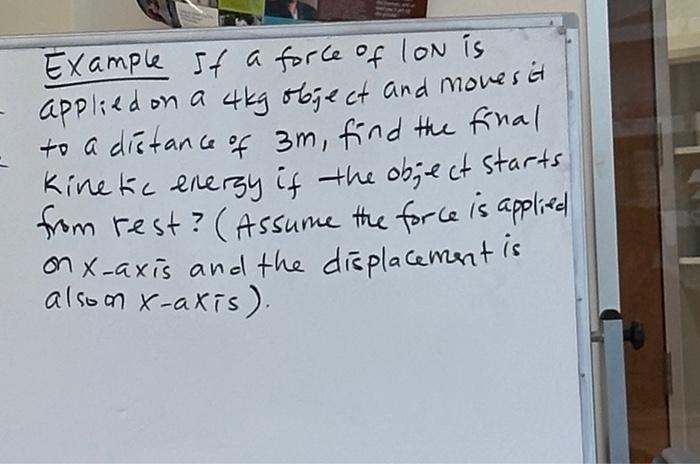 Example If a force of 10N is
applied on a 4kg object and moves it
to a distance of 3m, find the final
Kinetic energy if the object starts
from rest? (Assume the force is applied
on x-axis and the displacement is
also on x-axis).